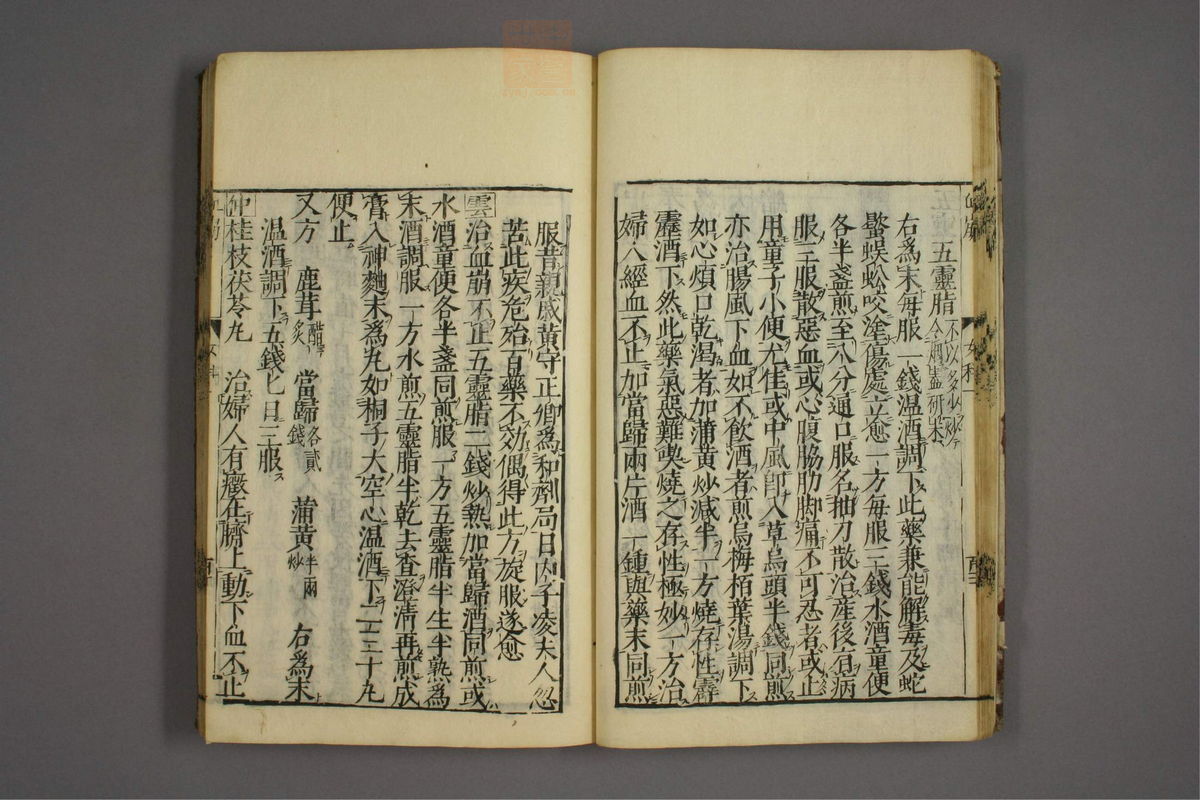 五靈脂不以多少炒令烟盡研末
右爲末每服一錢温酒調下此藥兼能解毒及蛇
螫蜈蚣咬塗傷處立愈一方毎服三錢水酒童便
各半盞煎至八分通口服名抽刀散治産後有病
服三服散惡血或心腹脇肋脚痛不可忍者或止
用童子小便尤佳或中風卽入草烏頭半錢同煎
亦治腸風下血如不飲酒者煎烏梅栢葉湯調下
如心煩口乾渴者加蒲黄炒減半一方燒存性霹
靂酒下然此藥氣惡難喫燒之存性極妙一方治
婦人經血不止加當歸兩片酒一鍾與藥末同煎
服昔親戚黄守正卿爲和劑局日内子凌夫人忽
苦此疾危殆百藥不効偶得此方旋服遂愈
雲治血崩不止五靈脂二錢炒熱加當歸酒同煎或
水酒童便各半盞同煎服一方五靈脂半生半熟爲
末酒調服一方水煎五靈脂半乾去査澄清再煎成
膏入神麯末爲丸如桐子大空心温酒下二三十丸
便止
又方 鹿茸醋炙 當歸各貳錢 蒲黄半兩炒 右爲末
温酒調下五錢匕日三服
仲桂枝茯苓丸 治婦人有癥在臍上動下血不止